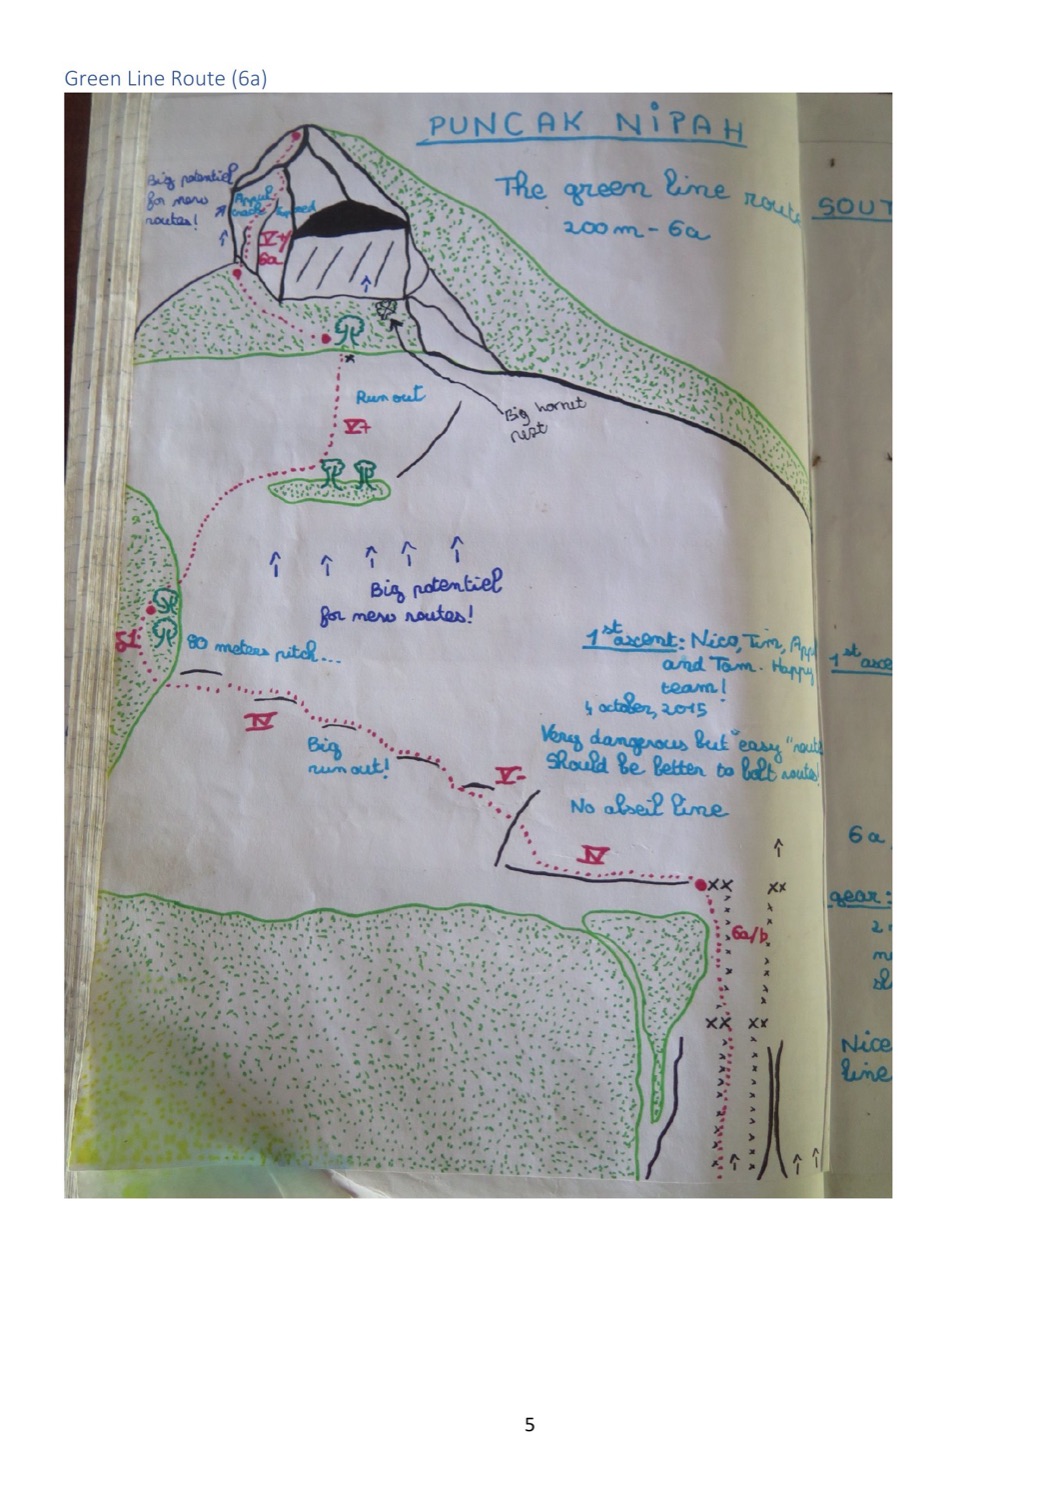 Green Line Route (6a)
PUNCAK NIPAH
The green line route
200m - 6a
Big potentiel
for new
routes!
crack
V+/
6a
Run out
V+
Big hornet
nest
Big potentiel
for new routes!
80 meters pitch...
IV
Big
run out!
V-
IV
1st ascent: Nico, Tim,
and Tom. Happy
team!
october, 2015
Very dangerous but "easy" route
Should be better to bolt routes!
No abseil line
6a/b
SOUT
1st asce
6a
gear:
2
Nice
line
5